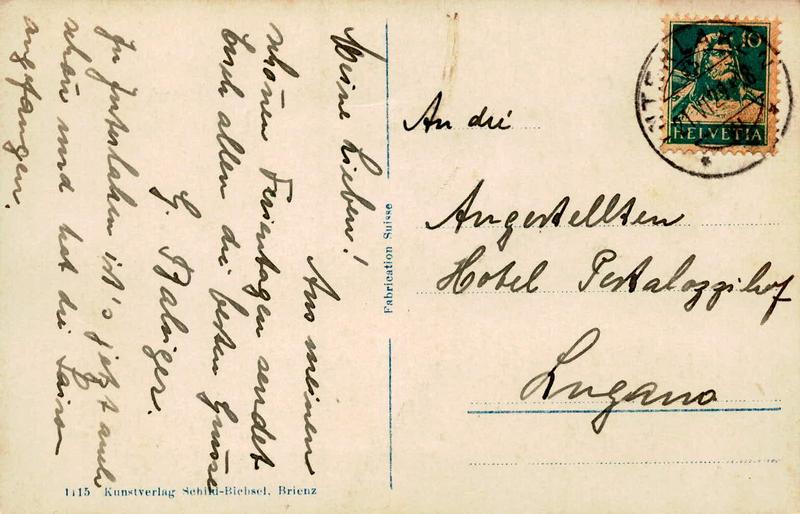 Meine Lieben!
Aus meinen
schönen Ferientagen sendet
Euch allen die besten Grüsse
G. Balsiger.
In Interlaken ist's jetzt auch
schön und hat die Saison
angefangen.
Fabrication Suisse
1115 Kunstverlag Schild-Bichsel, Brienz
10
HELVETIA
An die
Angestellten
Hotel Pestalozzihof
Lugano